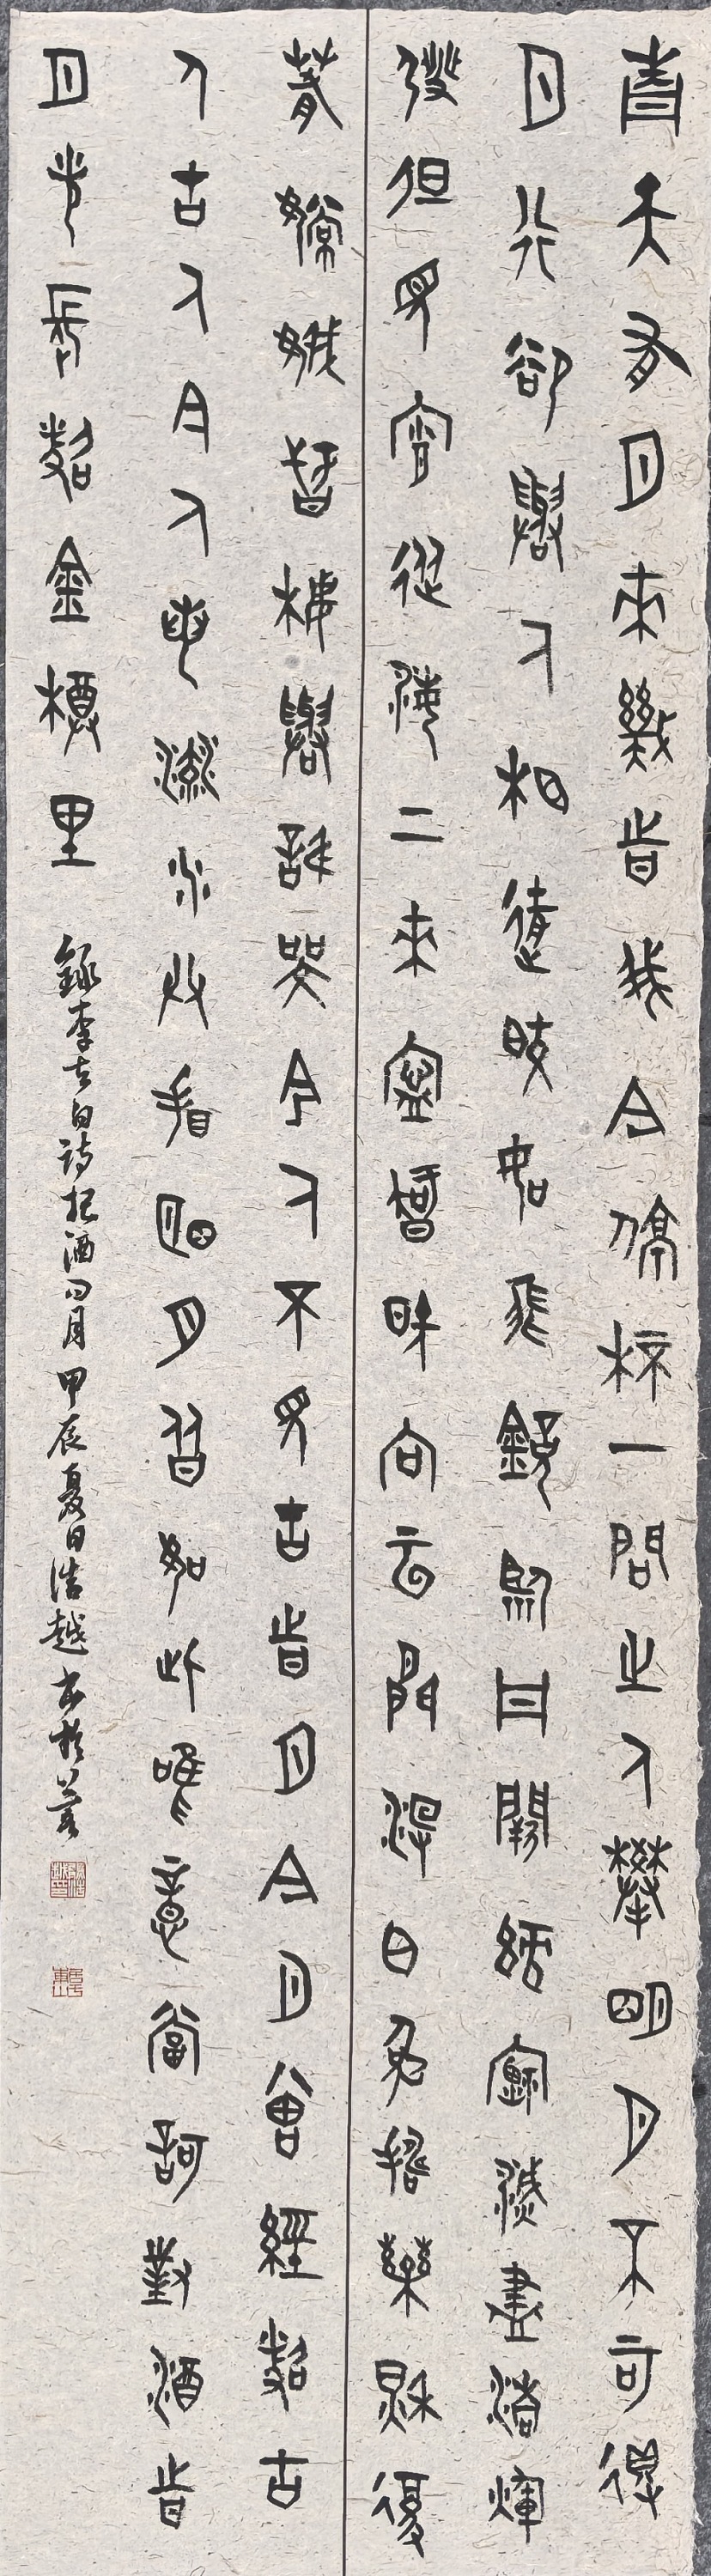 青天有月來幾時我今停杯一問之人攀明月不可得
月行卻與人相隨皎如飛鏡臨丹闕綠煙滅盡清輝
發但見宵從海上來寧知曉向云間沒白兔搗藥秋復
春嫦娥孤棲與誰鄰今人不見古時月今月曾經照古
人古人今人若流水共看明月皆如此唯願當歌對酒時
月光長照金樽里
錄李太白詩把酒問月 甲辰夏日浩越書於